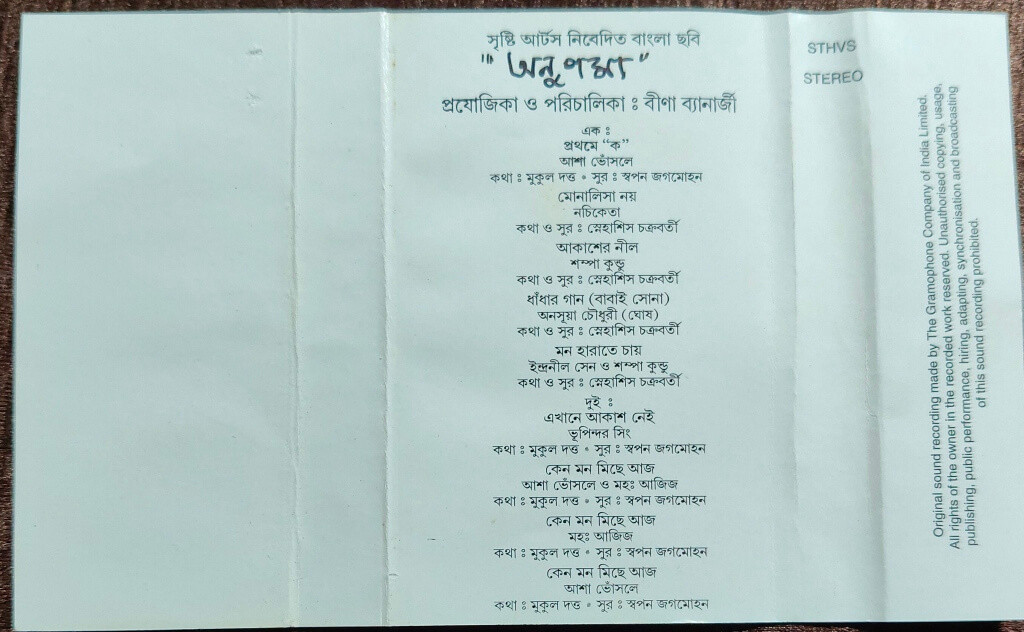 সৃষ্টি আর্টস নিবেদিত বাংলা ছবি
"অনুপমা"
প্রযোজিকা ও পরিচালিকা ঃ বীণা ব্যানার্জী
এক ঃ
প্রথমে “ক”
আশা ভোঁসলে
কথা ঃ মুকুল দত্ত • সুর ঃ স্বপন জগমোহন
মোনালিসা নয়
নচিকেতা
কথা ও সুর ঃ স্নেহাশিস চক্রবর্তী
আকাশের নীল
শম্পা কুন্ডু
কথা ও সুর ঃ স্নেহাশিস চক্রবর্তী
ধাঁধার গান (বাবাই সোনা)
অনসূয়া চৌধুরী (ঘোষ)
কথা ও সুর ঃ স্নেহাশিস চক্রবর্তী
মন হারাতে চায়
ইন্দ্রনীল সেন ও শম্পা কুন্ডু
কথা ও সুর ঃ স্নেহাশিস চক্রবর্তী
দুই ঃ
এখানে আকাশ নেই
ভূপিন্দর সিং
কথা ঃ মুকুল দত্ত • সুর ঃ স্বপন জগমোহন
কেন মন মিছে আজ
আশা ভোঁসলে ও মহঃ আজিজ
কথা ঃ মুকুল দত্ত • সুর ঃ স্বপন জগমোহন
কেন মন মিছে আজ
মহঃ আজিজ
কথা ঃ মুকুল দত্ত • সুর ঃ স্বপন জগমোহন
কেন মন মিছে আজ
আশা ভোঁসলে
কথা ঃ মুকুল দত্ত • সুর ঃ স্বপন জগমোহন
STHVS
STEREO
Original sound recording made by The Gramophone Company of India Limited.
All rights of the owner in the recorded work reserved. Unauthorised copying, usage,
publishing, public performance, hiring, adapting, synchronisation and broadcasting
of this sound recording prohibited.